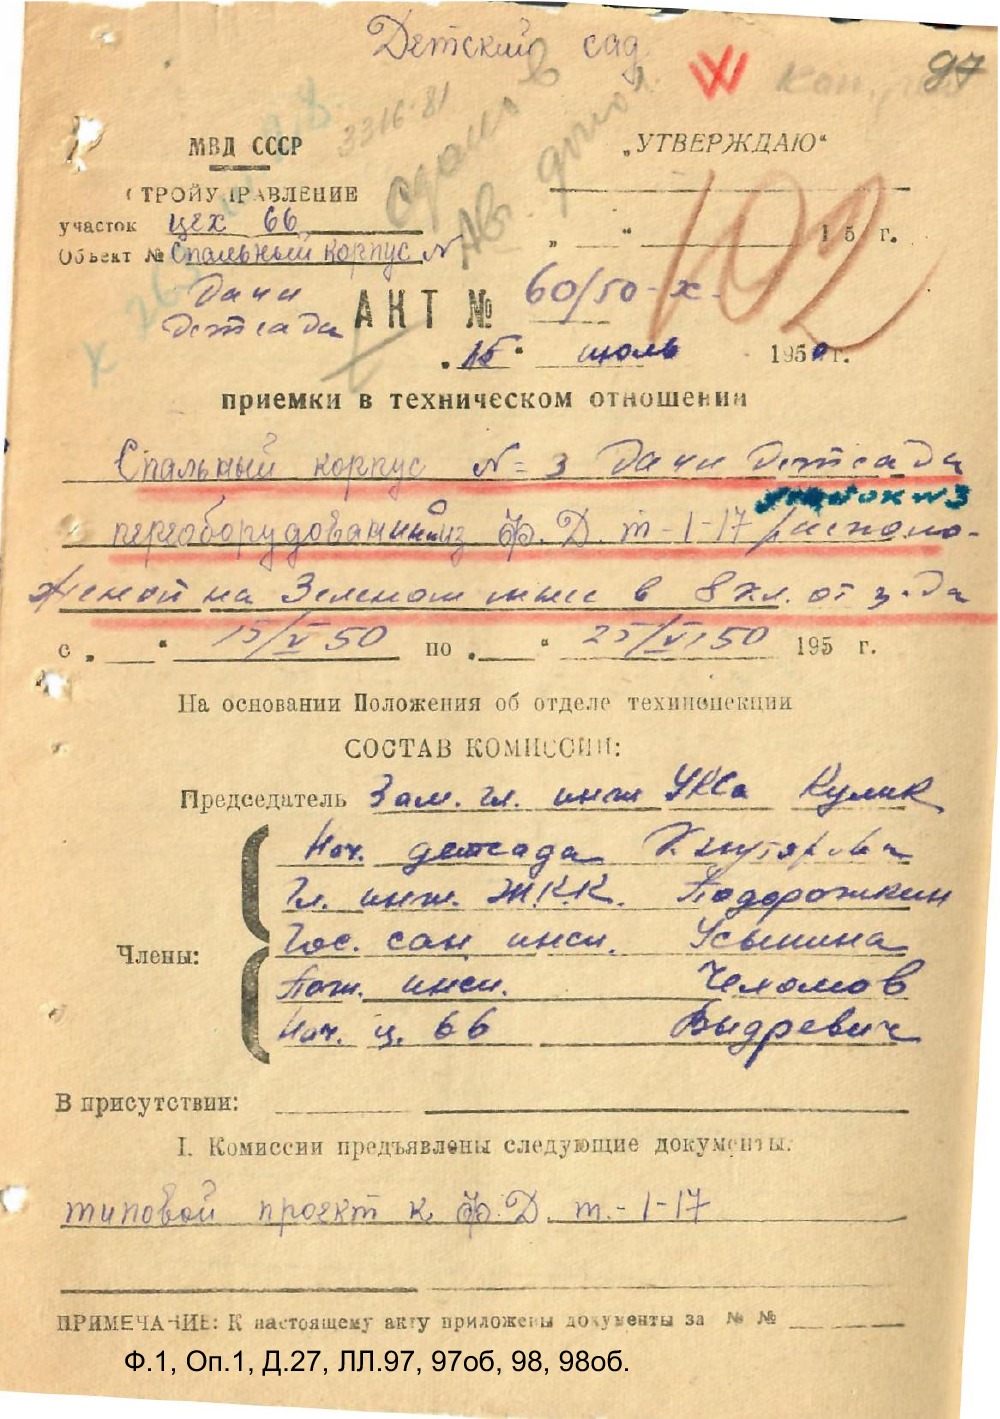 Детский сад
97
3316-81
МВД СССР
„УТВЕРЖДАЮ“
СТРОЙУПРАВЛЕНИЕ
участок цех 66
Объект № Спальный корпус №
Дачи
Детсада
„ “ 195 г.
102
АКТ № 60/50-х
„15“ июль 1950 г.
приемки в техническом отношении
Спальный корпус №=3 Дачи Детсада
№3
переоборудованный из ф.Д. т-1-17 располо-
женой на Зеленом мысе в 8 кл. от з-да
с „ “ 15/V 50 по „ “ 25/VI 50 195 г.
На основании Положения об отделе техинспекции
СОСТАВ КОМИССИИ:
Председатель Зам. гл. инж УКСа Кулик
Нач. детсада
Гл. инж. Ж.К.К. Подорожкин
Члены:
Гос. сан инсп. Усынина
Пож. инсп. Челомов
Нач. ц. 66 Выдревич
В присутствии:
I. Комиссии предъявлены следующие документы:
типовой проект к ф.Д. т.-1-17
ПРИМЕЧАНИЕ: К настоящему акту приложены документы за № №
Ф.1, Оп.1, Д.27, ЛЛ.97, 97об, 98, 98об.